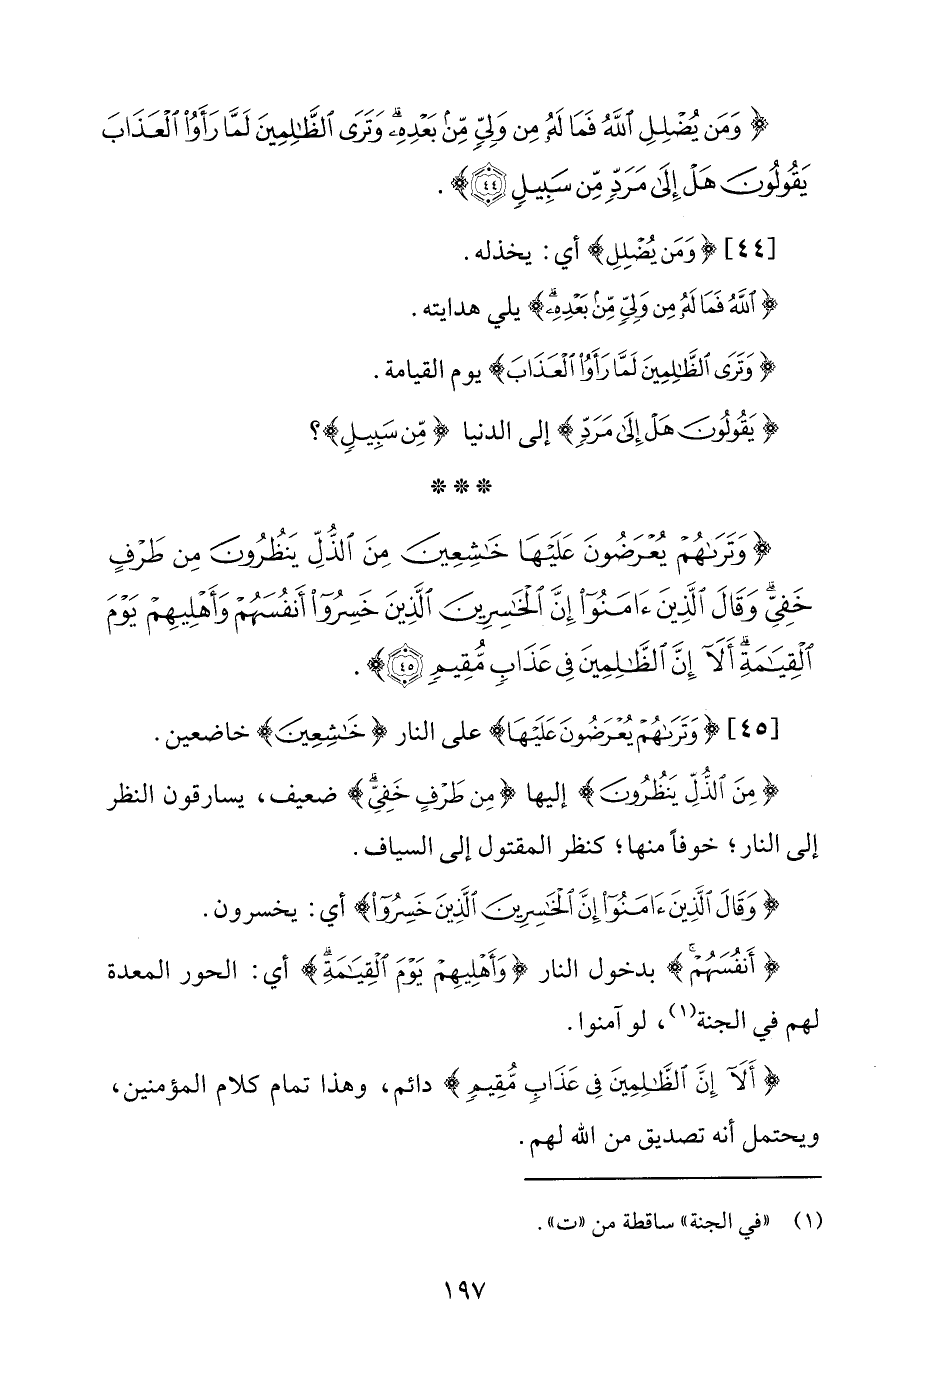 ﴿ وَمَن يُضْلِلِ ٱللَّهُ فَمَا لَهُۥ مِن وَلِيٍّ مِّنۢ بَعْدِهِۦۗ وَتَرَى ٱلظَّٰلِمِينَ لَمَّا رَأَوُا۟ ٱلْعَذَابَ
يَقُولُونَ هَلْ إِلَىٰ مَرَدٍّ مِّن سَبِيلٍ ٤٤﴾ .
[٤٤] ﴿ وَمَن يُضْلِلِ﴾ أي: يخذله.
﴿ ٱللَّهُ فَمَا لَهُۥ مِن وَلِيٍّ مِّنۢ بَعْدِهِۦۗ﴾ يلي هدايته.
﴿ وَتَرَى ٱلظَّٰلِمِينَ لَمَّا رَأَوُا۟ ٱلْعَذَابَ﴾ يوم القيامة.
﴿ يَقُولُونَ هَلْ إِلَىٰ مَرَدٍّ﴾ إلى الدنيا ﴿ مِّن سَبِيلٍ﴾؟
* * *
﴿ وَتَرَىٰهُمْ يُعْرَضُونَ عَلَيْهَا خَٰشِعِينَ مِنَ ٱلذُّلِّ يَنظُرُونَ مِن طَرْفٍ
خَفِيٍّۗ وَقَالَ ٱلَّذِينَ ءَامَنُوٓا۟ إِنَّ ٱلْخَٰسِرِينَ ٱلَّذِينَ خَسِرُوٓا۟ أَنفُسَهُمْ وَأَهْلِيهِمْ يَوْمَ
ٱلْقِيَٰمَةِۗ أَلَآ إِنَّ ٱلظَّٰلِمِينَ فِى عَذَابٍ مُّقِيمٍ ٤٥﴾ .
[٤٥] ﴿ وَتَرَىٰهُمْ يُعْرَضُونَ عَلَيْهَا﴾ على النار ﴿ خَٰشِعِينَ﴾ خاضعين.
﴿ مِنَ ٱلذُّلِّ يَنظُرُونَ﴾ إليها ﴿ مِن طَرْفٍ خَفِيٍّۗ﴾ ضعيف، يسارقون النظر
إلى النار؛ خوفاً منها؛ كنظر المقتول إلى السياف.
﴿ وَقَالَ ٱلَّذِينَ ءَامَنُوٓا۟ إِنَّ ٱلْخَٰسِرِينَ ٱلَّذِينَ خَسِرُوٓا۟﴾ أي: يخسرون.
﴿ أَنفُسَهُمْۚ﴾ بدخول النار ﴿ وَأَهْلِيهِمْ يَوْمَ ٱلْقِيَٰمَةِۗ﴾ أي: الحور المعدة
لهم في الجنة(١)، لو آمنوا.
﴿ أَلَآ إِنَّ ٱلظَّٰلِمِينَ فِى عَذَابٍ مُّقِيمٍ﴾ دائم، وهذا تمام كلام المؤمنين،
ويحتمل أنه تصديق من الله لهم.
(١) «في الجنة» ساقطة من «ت».
١٩٧